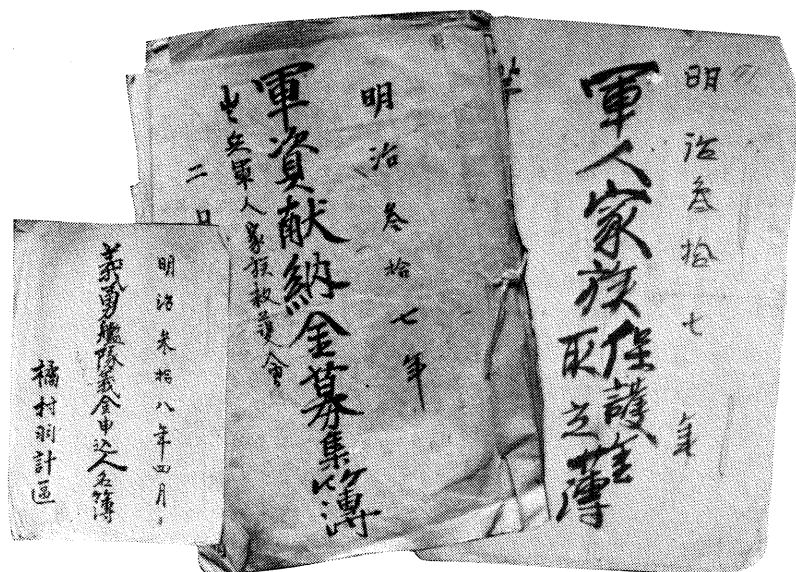 明治叁拾七年
軍人家族保護金
取立簿
明治叁拾七年
軍資献納金募集簿
出兵軍人家族救護會
明治叁拾八年四月
義勇艦隊義金申込人名簿
橘村羽計区